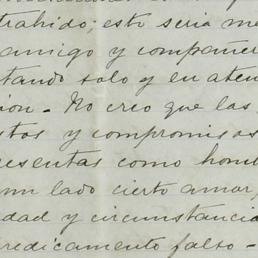 trahido; esto seria me
amigo y compañer
tando solo y en aten
ion. - No creo que las
stos y compromisos
esentas como homb
mi lado cierto amor,
idad y circunstancia
redicamento falto -